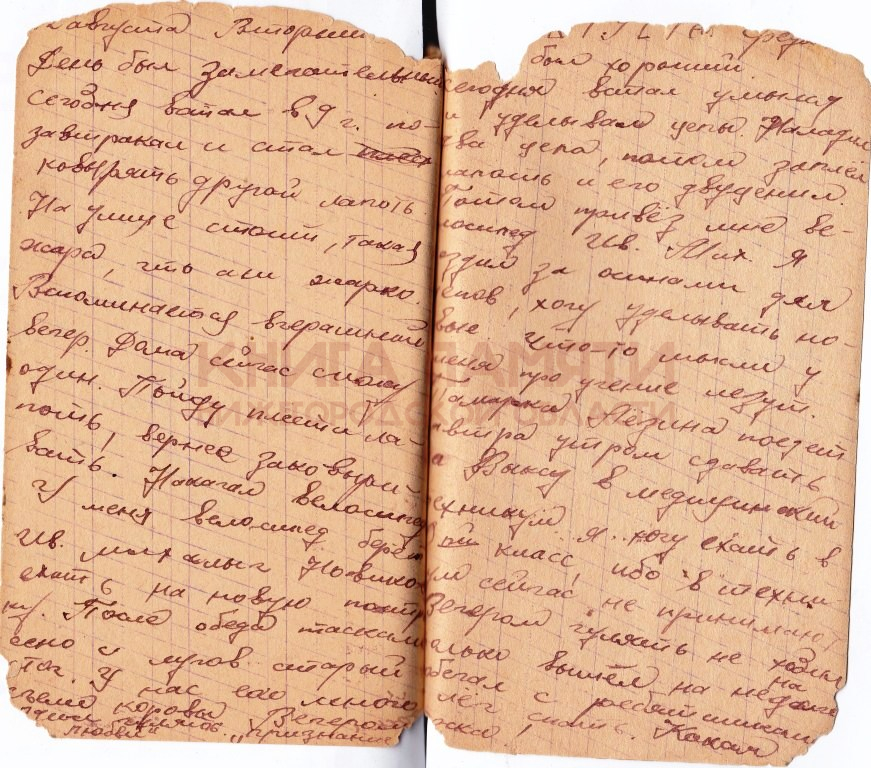 августа Вторник
День был замечательный
сегодня встал в 9 г. по-
завтракал и стал
ковырять другой лапоть.
На улице стоит, такая
жара, что аш жарко.
Вспоминается вчерашний
вечер. Дома сейчас сижу
один. Пойду плести ла-
поть, вернее заковыри-
вать. Накачал велосипед
У меня велосипед берёт
Ив. Михалыч Новиков
ехать на новую
После обеда таскали
сено с лугов старый
У нас его много
съели коровы Вечером
"признание
любви"
был хороший
сегодня встал
и уделывал цепы. Наладил
два цепа, потом заплёл
лапоть и его двуденил.
Потом привёз мне ве-
лосипед Ив. Мих. Я
ездил за осинами для
цепов, хочу уделывать но-
вые Что-то мысли у
меня про учение лезут.
Тамарка Лёзина поедет
завтра утром сдавать
на Выксу в медицинский
техникум. Я хочу ехать в
класс, ибо в техни-
кум сейчас не принимают
Вечером гулять не ходил
только вышел на
на недолго
побегал с ребятишками
лёг спать. Какая
КНИГА ПАМЯТИ
НИЖЕГОРОДСКОЙ ОБЛАСТИ